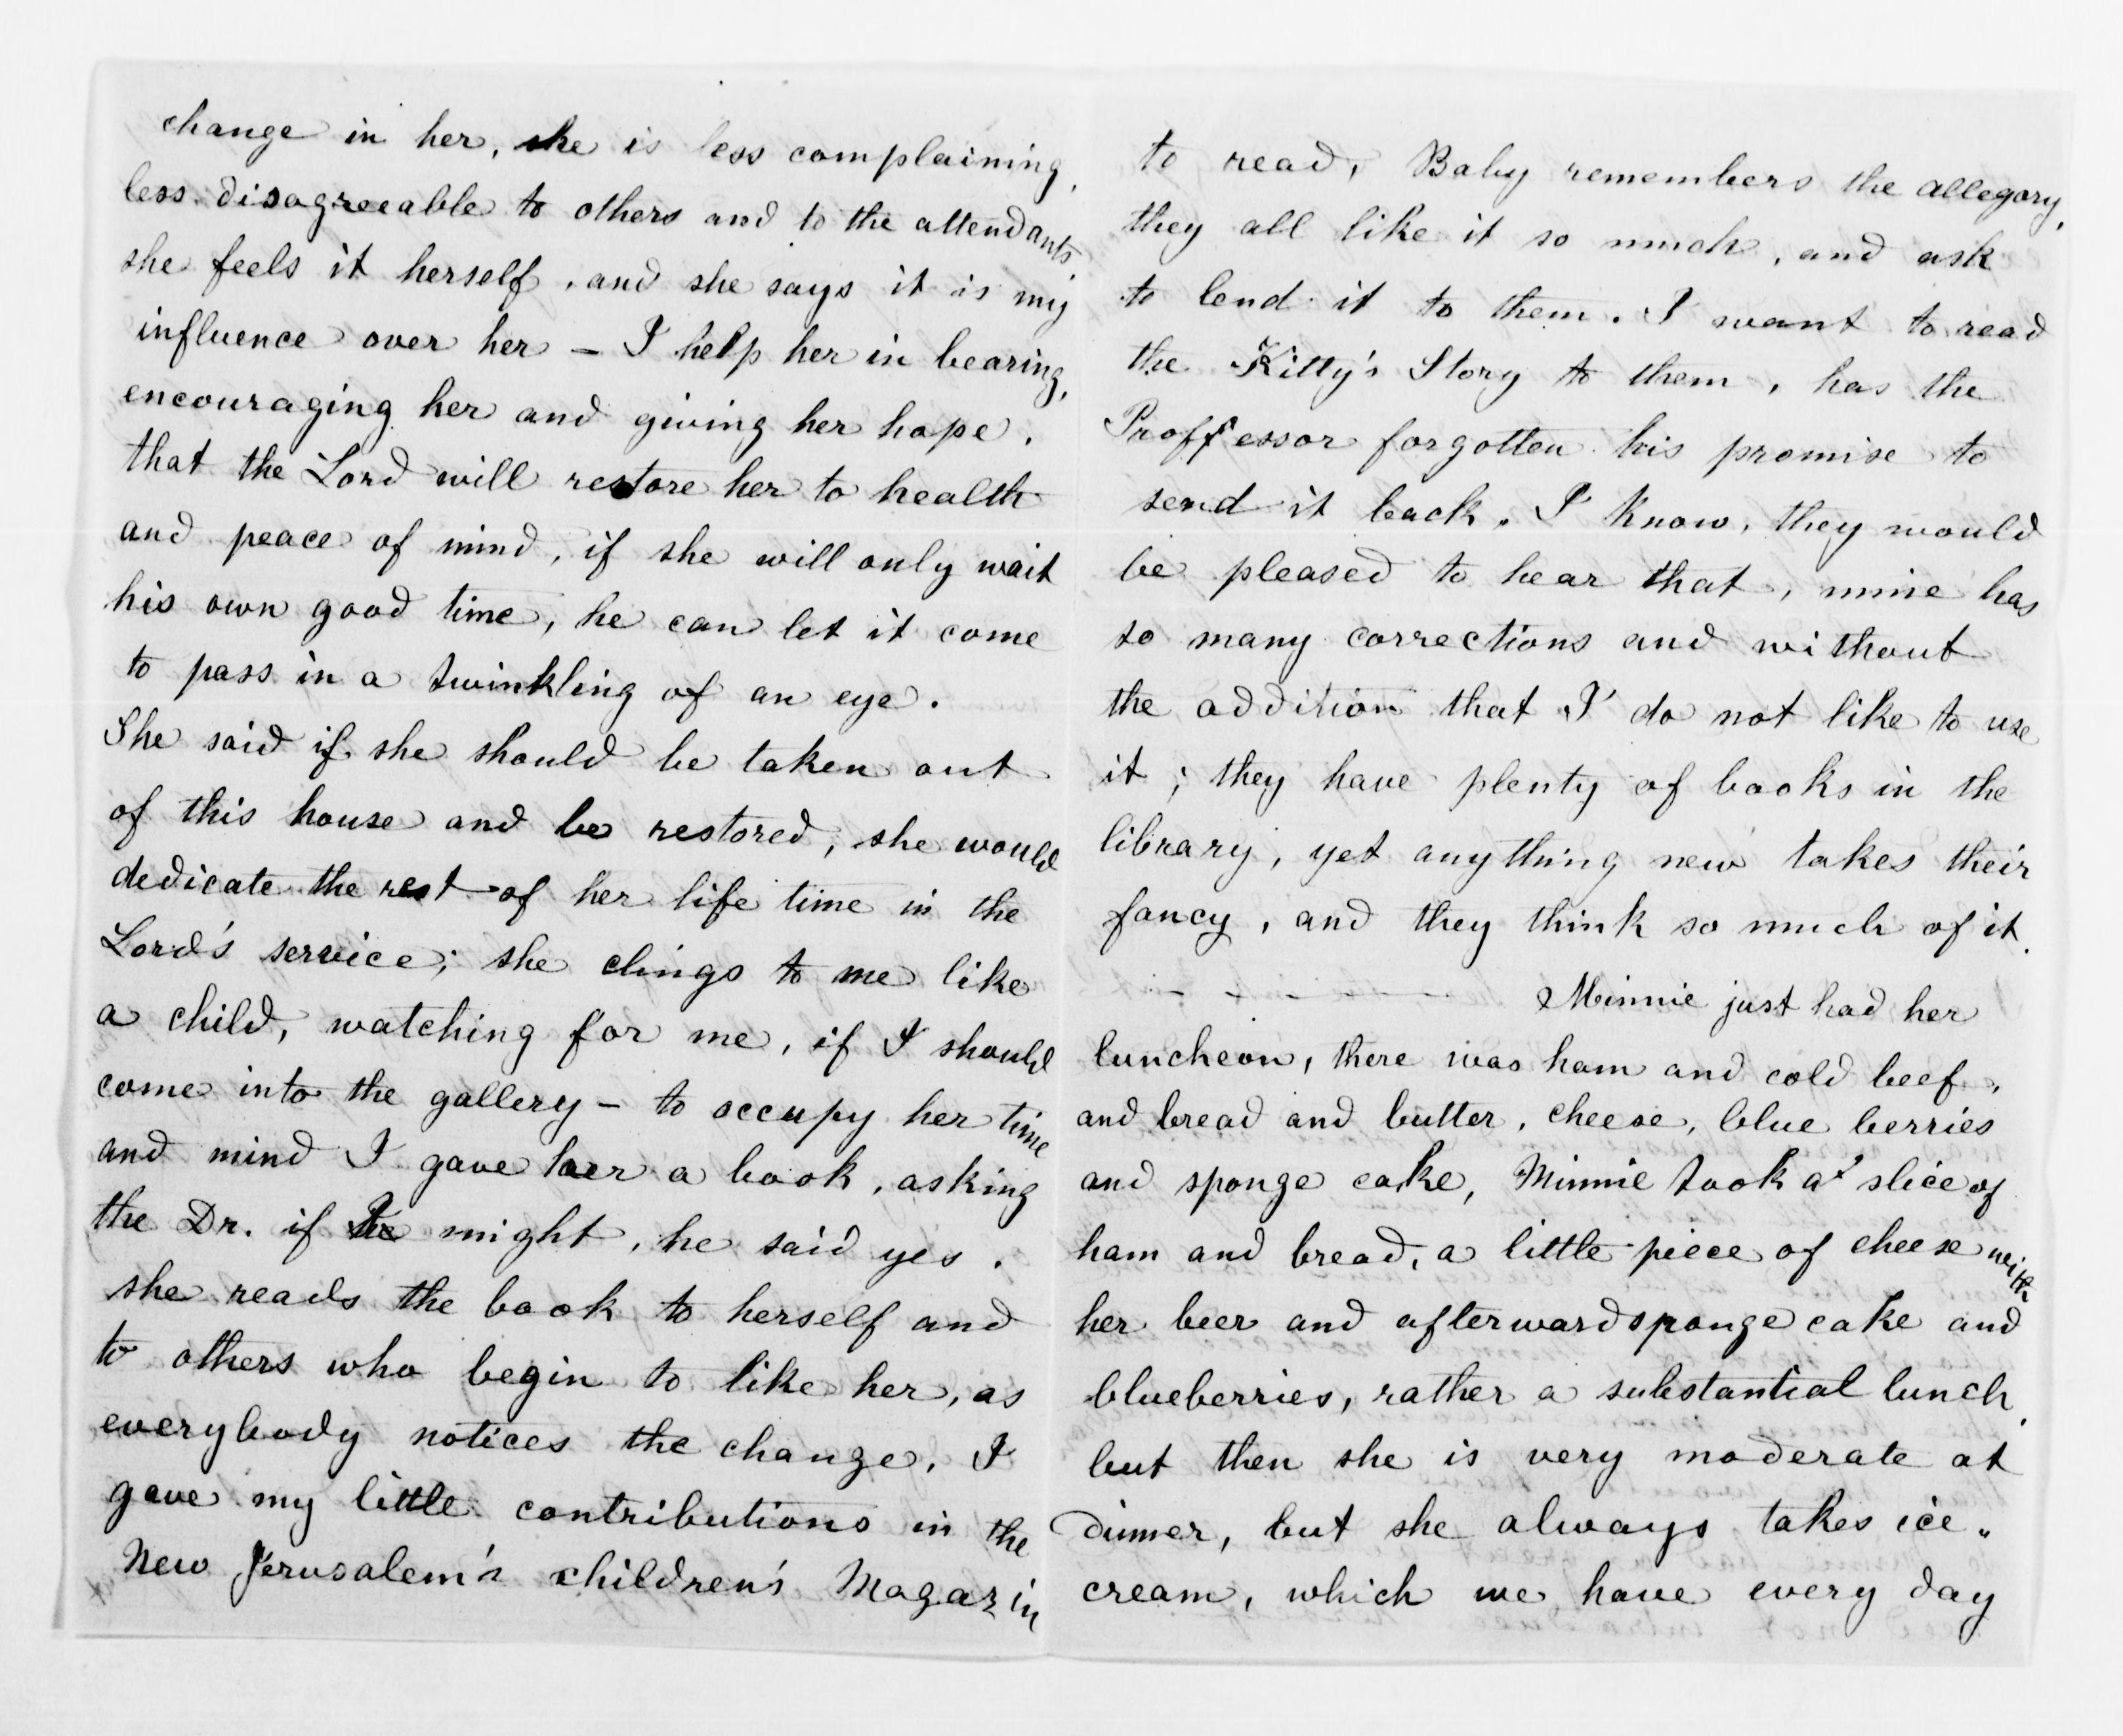 change in her, she is less complaining,
less disagreeable to others and to the attendants
she feels it herself, and she says it is my
influence over her – I help her in bearing,
encouraging her and giving her hope,
that the Lord will restore her to health
and peace of mind, if she will only wait
his own good time, he can let it come
to pass in a twinkling of an eye.
She said if she should be taken out
of this house and be restored, she would
dedicate the rest of her life time in the
Lord's service; she clings to me like
a child, watching for me, if I should
come into the gallery – to occupy her time
and mind I gave her a book, asking
the Dr. if might, he said yes.
she reads the book to herself and
to others who begin to like her, as
everybody notices the change, I
gave my little contributions in the
New Jerusalem's children's Magazin
to read, Baby remembers the allegory,
they all like it so much, and ask
to lend it to them. I want to read
the Kitty's Story to them, has the
Proffessor forgotten his promise to
send it back. I know, they would
be pleased to hear that, mine has
so many corrections and without
the addition that I do not like to use
it; they have plenty of books in the
library, yet anything new takes their
fancy, and they think so much of it.
– – – – Minnie just had her
luncheon, there was ham and cold beef,
and bread and butter, cheese, blue berries
and sponge cake, Minnie took a slice of
ham and bread, a little piece of cheese with
her beer and afterward sponge cake and
blueberries, rather a substantial lunch,
but then she is very moderate at
dinner, but she always takes ice„
cream, which we have every day